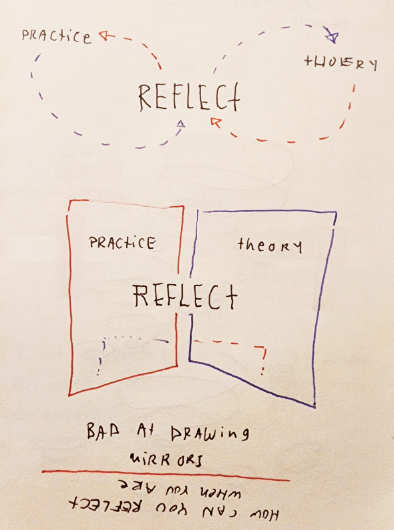 PRACTICE
tHOERY
REFLECt
PRACTICE
theory
REFLECt
HOW CAN YOU REFLECT
WHEN YOU ARE
BAD At DRAWING
MIRRORS